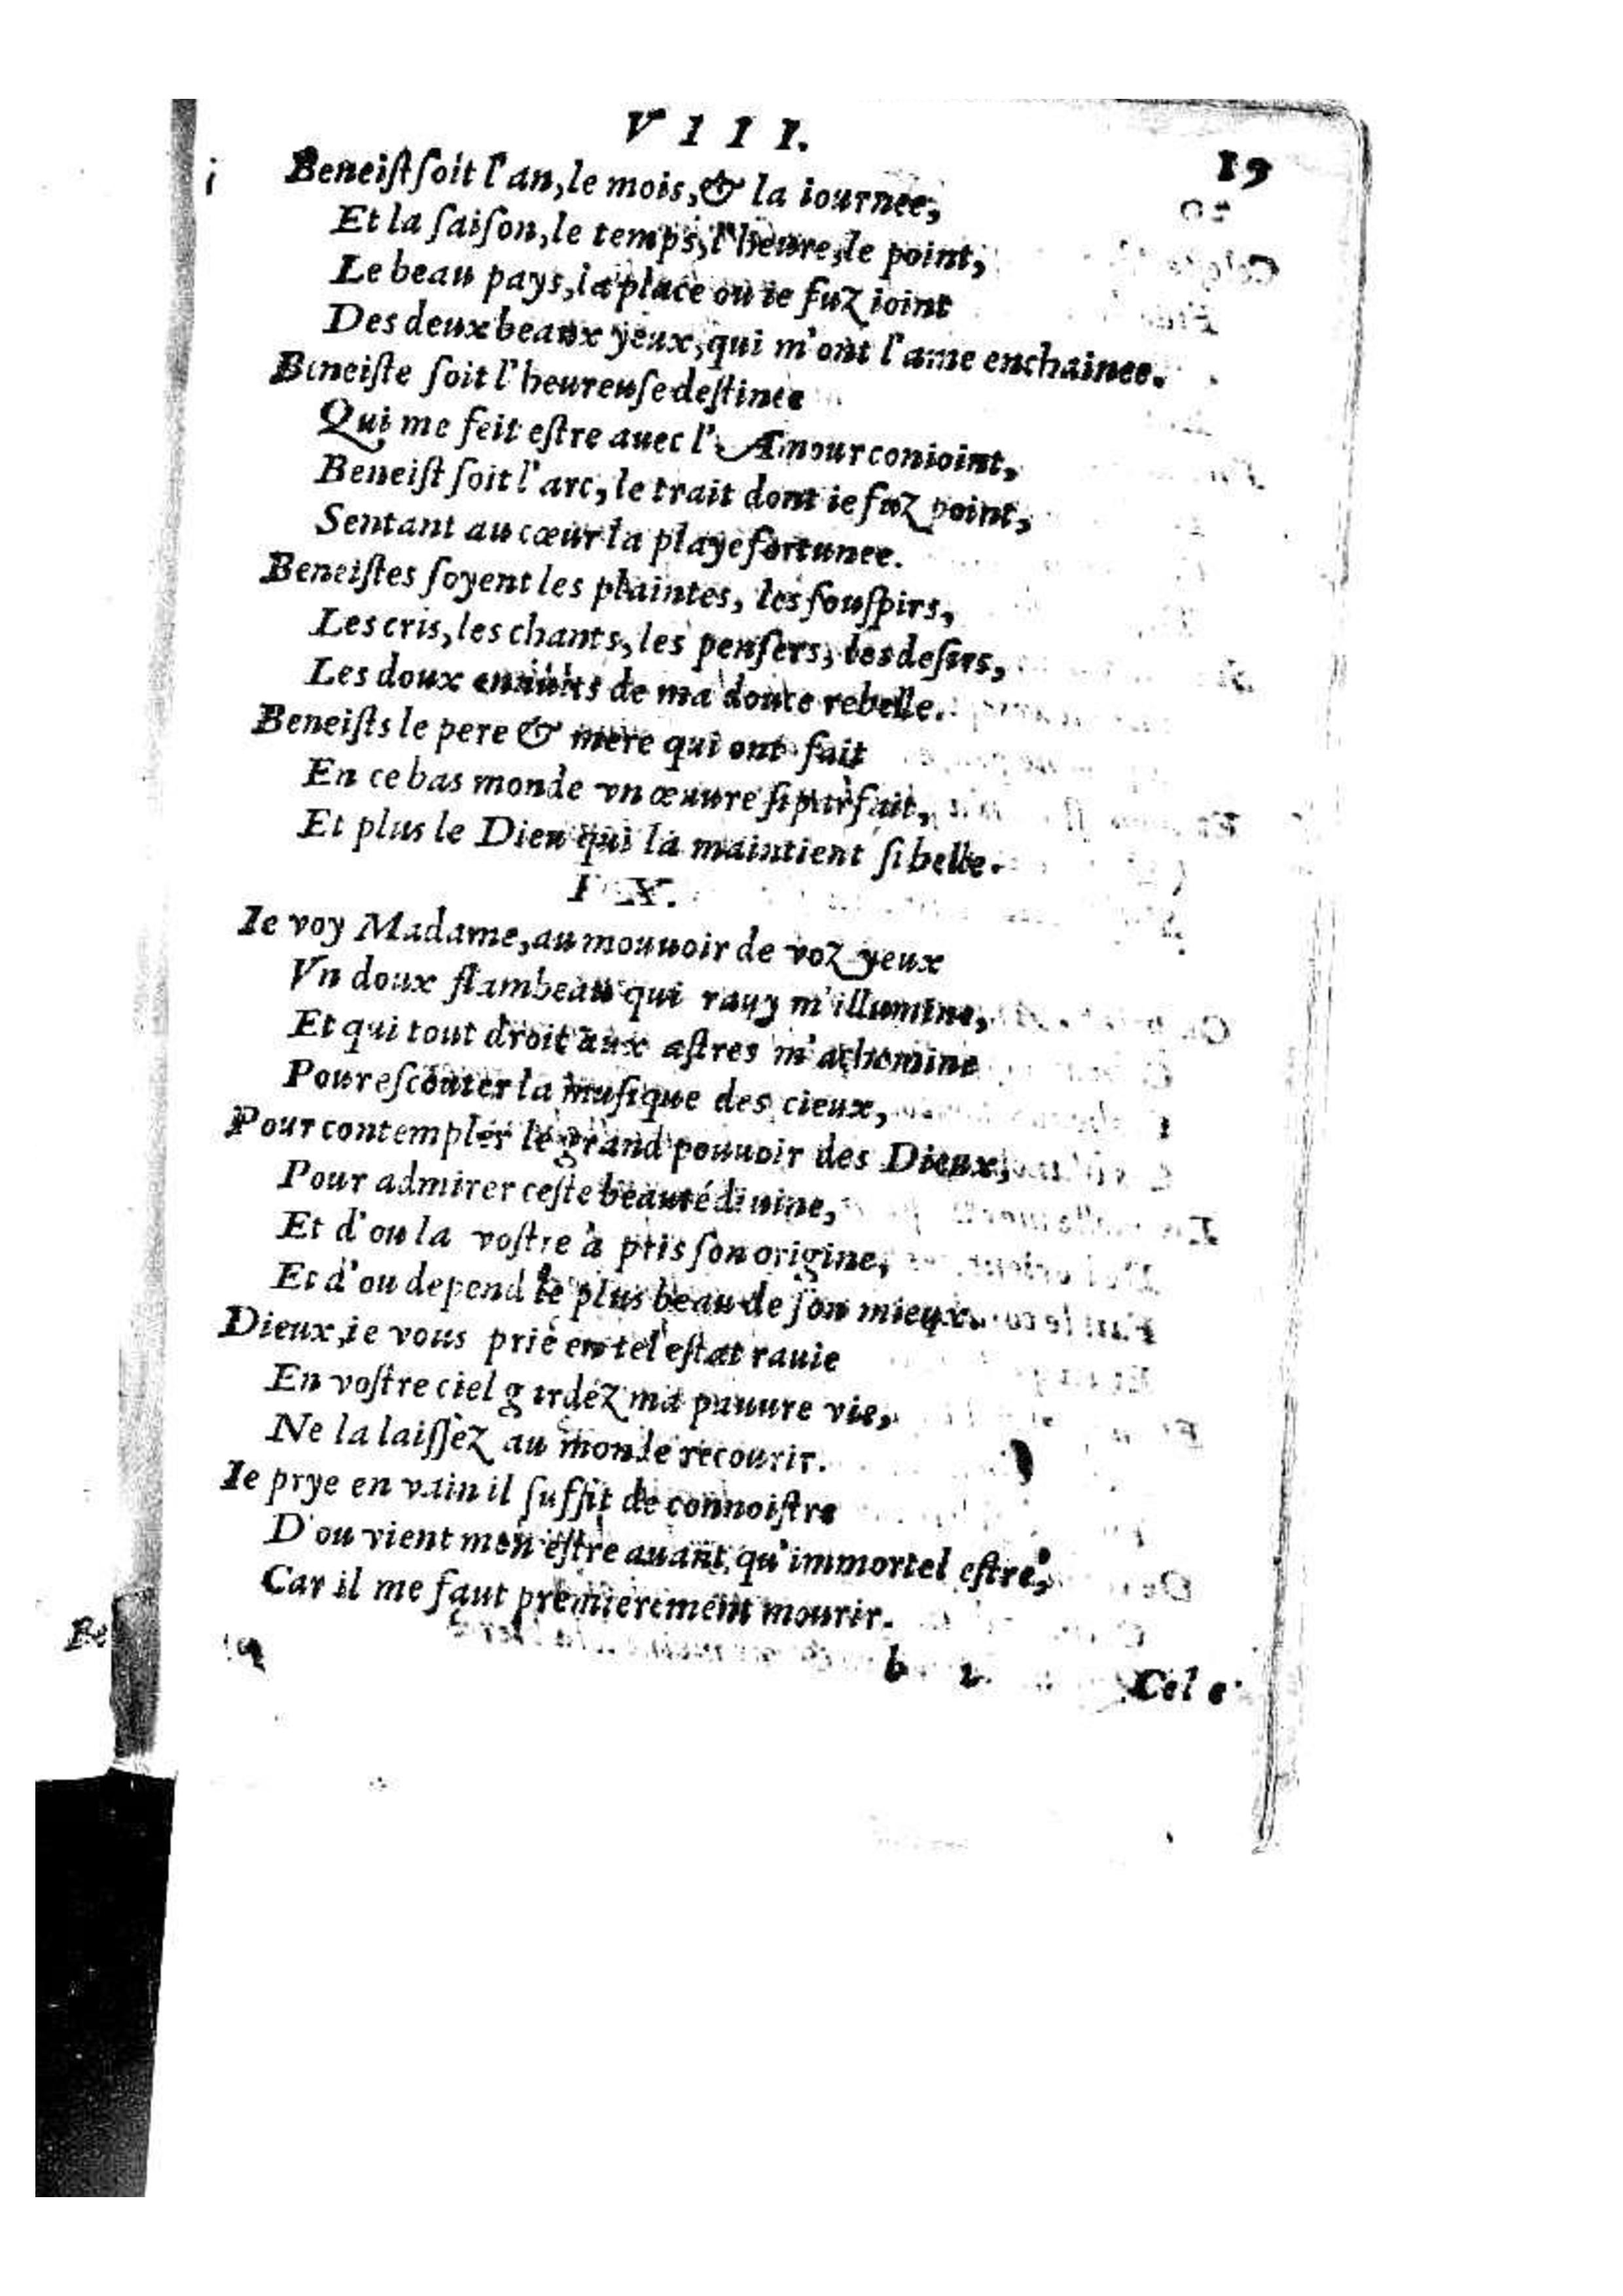 VIII.
19
Beneiſt ſoit l'an, le mois, & la iournee,
Et la ſaiſon, le temps, l'heure, le point,
Le beau pays, la place ou ie fuz ioint
Des deux beaux yeux, qui m'ont l'ame enchainee.
Beneiſte ſoit l'heureuſe deſtinee
Qui me feit eſtre auec l'Amour conioint,
Beneiſt ſoit l'arc, le trait dont ie fuz point,
Sentant au cœur la playe fortunee.
Beneiſtes ſoyent les plaintes, les ſouſpirs,
Les cris, les chants, les penſers, les deſirs,
Les doux ennuits de ma douce rebelle.
Beneiſts le pere & mere qui ont fait
En ce bas monde vn œuure ſi parfait,
Et plus le Dieu qui la maintient ſi belle.
IX.
Ie voy Madame, au mouuoir de voz yeux
Vn doux flambeau qui rauy m'illumine,
Et qui tout droit aux aſtres m'achemine
Pour eſcouter la muſique des cieux,
Pour contempler le grand pouuoir des Dieux,
Pour admirer ceſte beauté diuine,
Et d'ou la voſtre à pris ſon origine,
Et d'ou depend le plus beau de ſon mieux.
Dieux, ie vous prie en tel eſtat rauie
En voſtre ciel gardez ma pauure vie,
Ne la laiſſez au monde recourir.
Ie prye en vain il ſuffit de connoiſtre
D'ou vient mon eſtre auant qu'immortel eſtre,
Car il me faut premierement mourir.
Be
b 2
Cel e